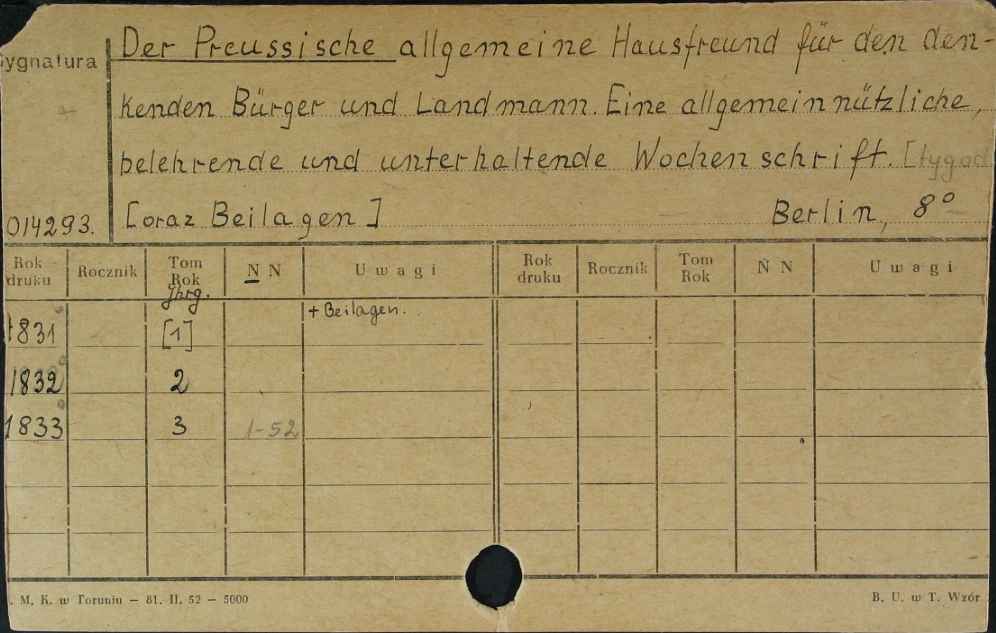 Der Preussische allgemeine Hausfreund für den den-
ygnatura
kenden Bürger und Landmann. Eine allgemeinnützliche,
belehrende und unterhaltende Wochenschrift. [tygod
014293. [oraz Beilagen] Berlin, 8°
Rok druku Rocznik Tom Rok Jhrg. N N Uwagi Rok druku Rocznik Tom Rok N N Uwagi
1831 [1] + Beilagen.
1832 2
1833 3 1-52
. M. K. w Toruniu — 81. II. 52 — 5000 B. U. w T. Wzór